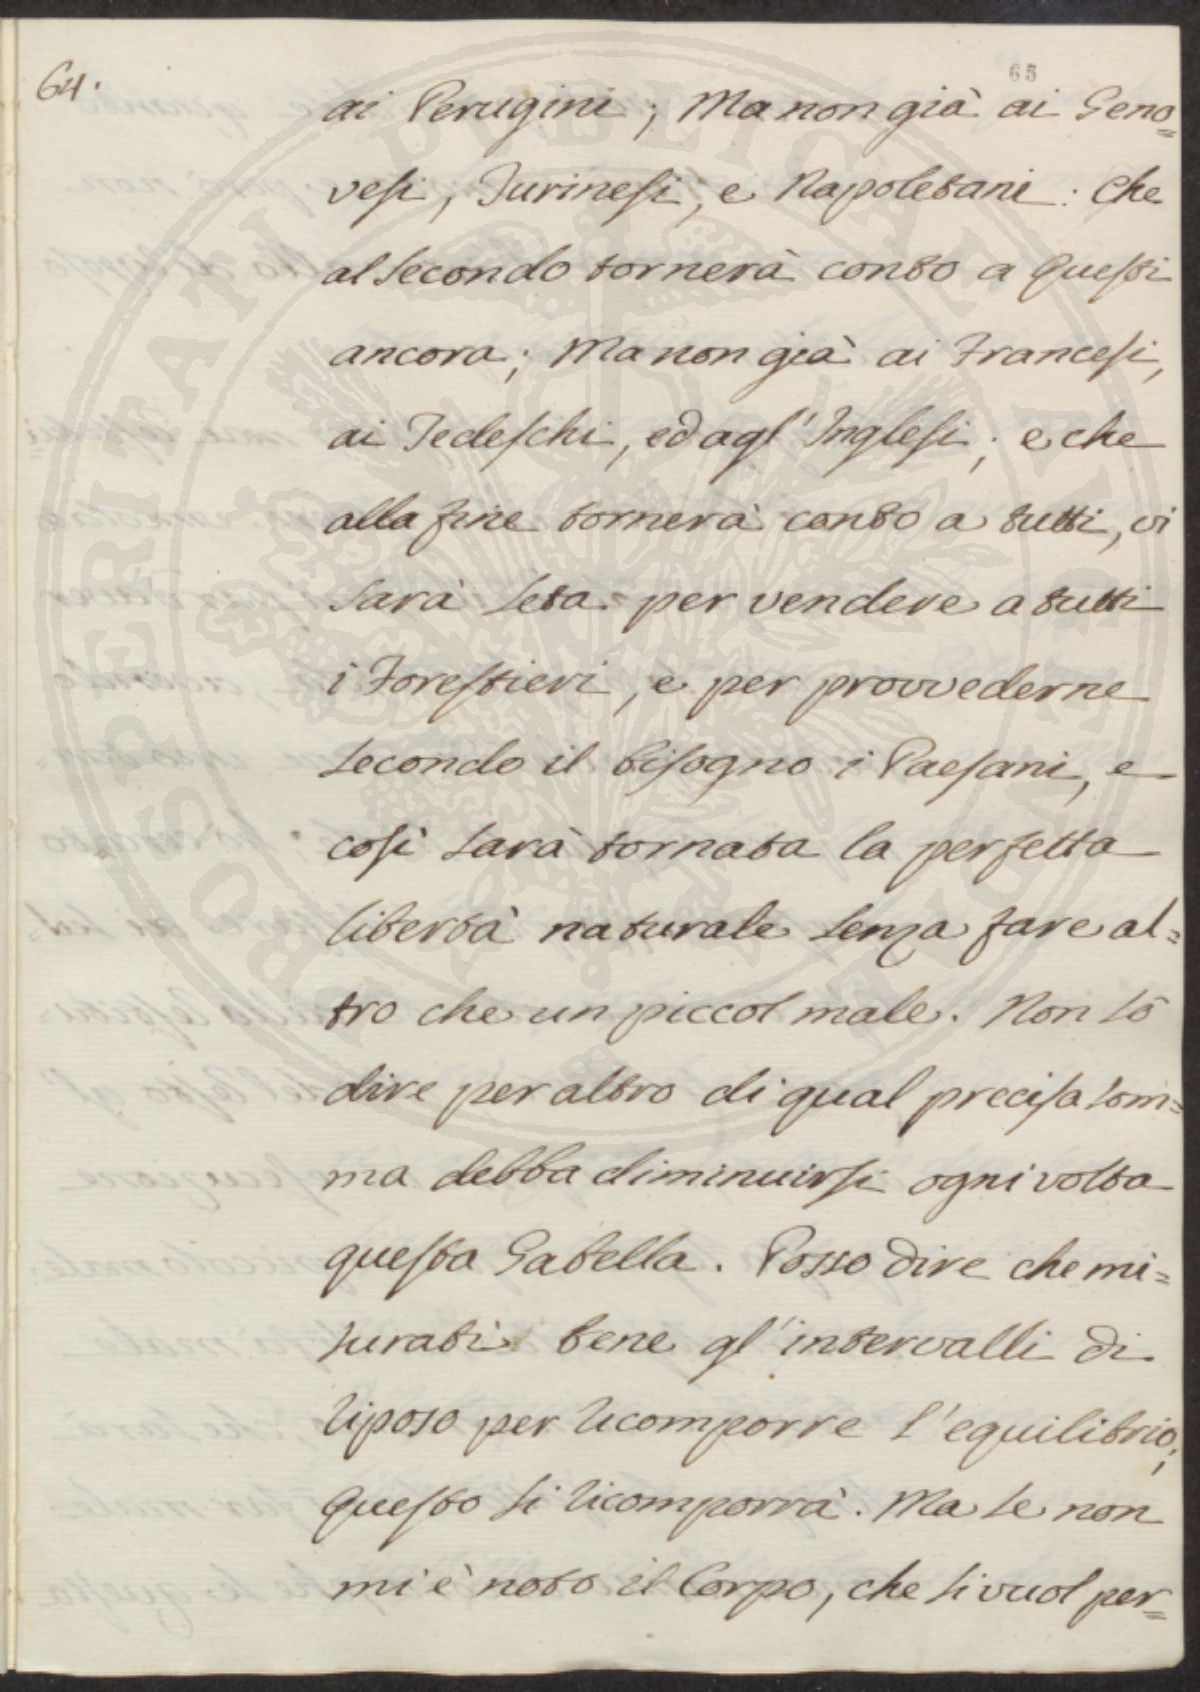 64.
65
ai Perugini; Ma non già ai Geno=
vesi, Turinesi, e Napoletani: Che
al secondo tornerà conto a questi
ancora; Ma non già ai Francesi,
ai Tedeschi, ed agl'Inglesi; e che
alla fine tornerà conto a tutti, vi
sarà seta per vendere a tutti
i Forestieri, e per provvederne
secondo il bisogno i Paesani, e
così sarà tornata la perfetta
libertà naturale senza fare al=
tro che un piccol male. Non sò
dire per altro di qual precisa som=
ma debba diminuirsi ogni volta
questa Gabella. Posso dire che mi=
surati bene gl'intervalli di
riposo per ricomporre l'equilibrio,
questo si ricomporrà. Ma se non
mi è noto il Corpo, che si vuol per=
PROSPERITATI PUBLICAE AUGENDAE